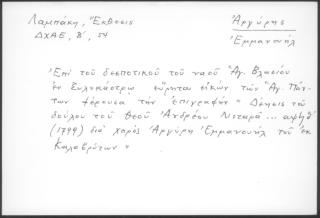 Λαμπάκη, Ἔκθεσις
ΔΧΑΕ, Β', 54
Ἀργύρης
Ἐμμανουήλ
"Ἐπὶ τοῦ δεσποτικοῦ τοῦ ναοῦ Ἁγ. Βλασίου
ἐν Ξυλοκάστρῳ εὕρηται εἰκὼν τῶν Ἁγ. Πάν-
των φέρουσα τὴν ἐπιγραφήν " Δέησις τοῦ
δούλου τοῦ Θεοῦ Ἀνδρέου Νοταρᾶ ... αψϟθ'
(1799) διὰ χειρὸς Ἀργύρη Ἐμμανουὴλ τοῦ ἐκ
Καλαβρύτων "